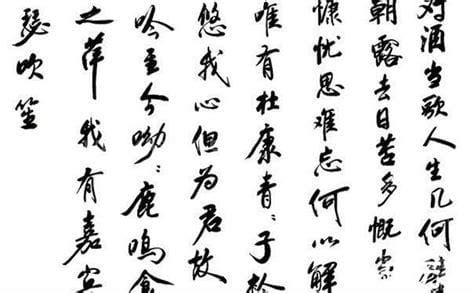 对酒当歌人生几何
朝露去日苦多慨
慷忧思难忘何以解
唯有杜康青〻子衿
悠我心但为君故
吟至今呦〻鹿鸣食
之苹我有嘉宾
瑟吹笙